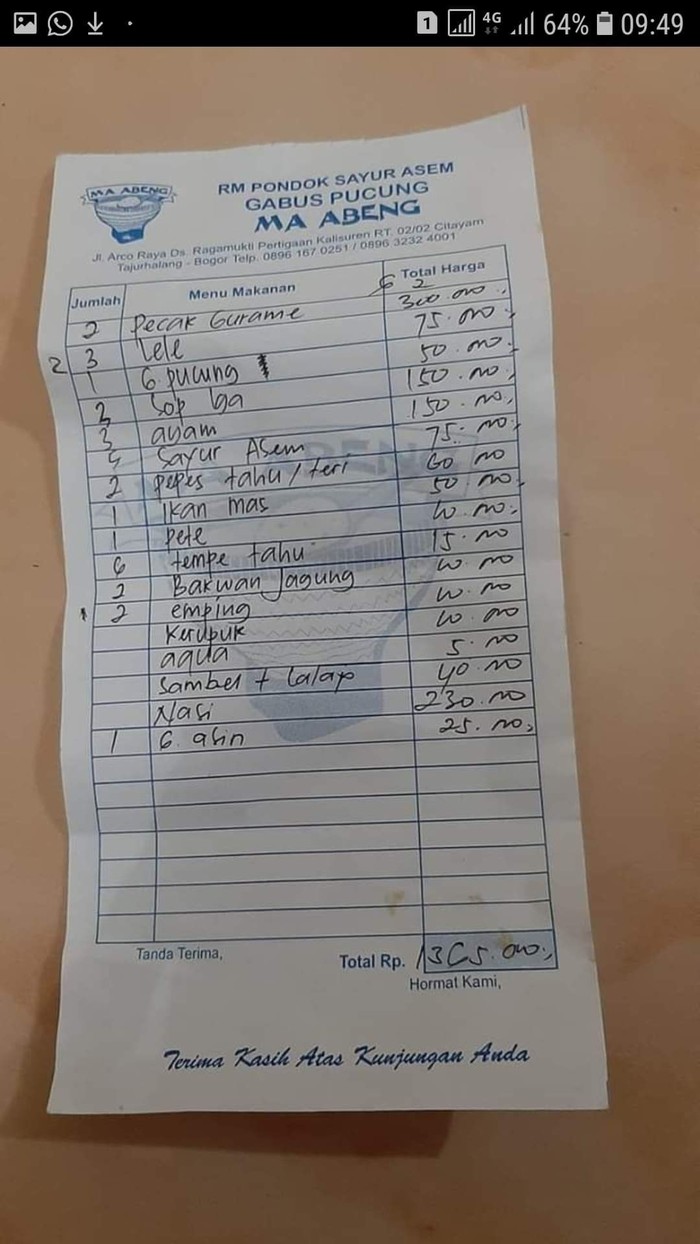 1 4G 64% 09:49
MA ABENG
RM PONDOK SAYUR ASEM
GABUS PUCUNG
MA ABENG
Jl. Arco Raya Ds. Ragamukti Pertigaan Kalisuren RT. 02/02 Citayam
Tajurhalang - Bogor Telp. 0896 167 0251 / 0896 3232 4001
Jumlah Menu Makanan Total Harga
G 2
2 Pecak Gurame 300.000.,
3 lele 75.000,
2 1 G. pucung 50.000,
2 Sop Iga 150.000,
3 ayam 150.000,
5 Sayur Asem 75.000,
2 pepes tahu/teri 60.000
1 Ikan mas 50.000,
1 pete 20.000,
6 tempe tahu 15.000
2 Bakwan Jagung 20.000
2 emping 20.000
Kerupuk 20.000
aqua 5.000
Sambel + lalap 40.000
Nasi 230.000
1 G. asin 25.000,
Tanda Terima, Total Rp. 1365.000.,
Hormat Kami,
Terima Kasih Atas Kunjungan Anda